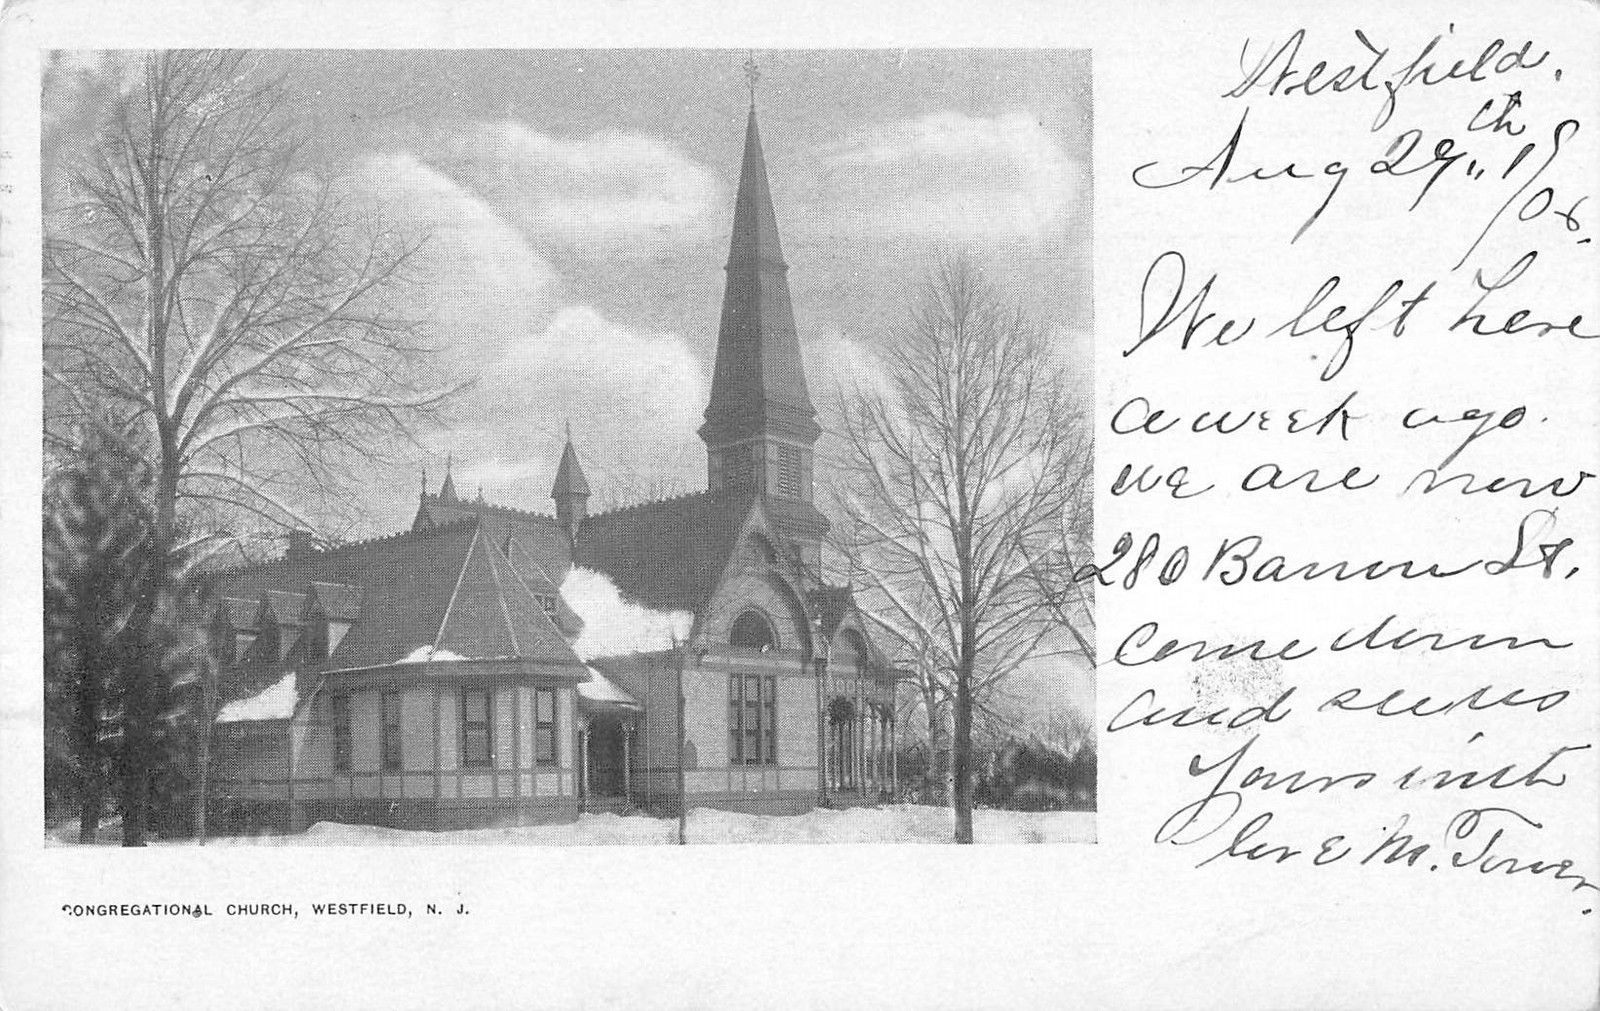 Westfield.
Aug 29th 190
We left here
a week ago.
we are now
280 Barrow St.
come down
and see us
Yours with
love M. Tower.
CONGREGATIONAL CHURCH, WESTFIELD, N. J.